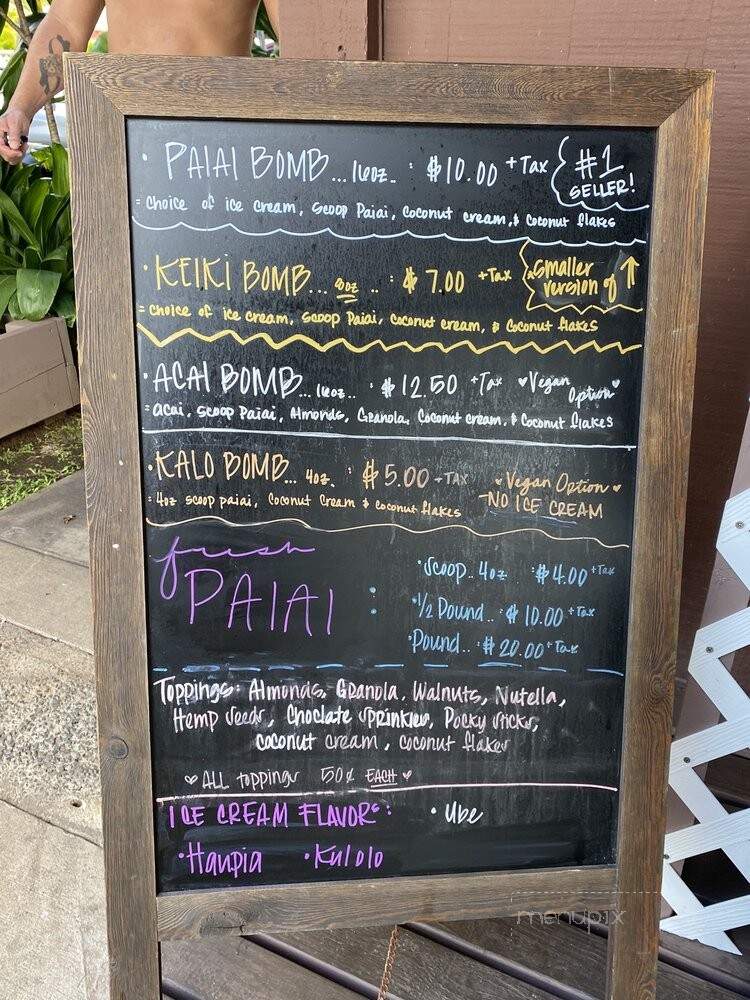 • PAIAI BOMB... 16oz. : $10.00 +Tax #1 SELLER!
= choice of ice cream, scoop Paiai, coconut cream, & coconut flakes
• KEIKI BOMB... 8oz .. : $7.00 +Tax smaller version of ↑
= choice of ice cream, scoop Paiai, coconut cream, & coconut flakes
• ACAI BOMB... 16oz.. : $12.50 +Tax ♥Vegan Option♥
= acai, scoop Paiai, Almonds, Granola, Coconut cream, & Coconut flakes
• KALO BOMB... 4oz. : $5.00 +TAX ♥Vegan Option♥
= 4oz scoop paiai, Coconut Cream & coconut flakes -NO ICE CREAM
fresh
PAIAI :
•Scoop.. 4oz : $4.00 +Tax
•1/2 Pound.. : $10.00 +Tax
•Pound.. : $20.00 +Tax
Toppings: Almonds, Granola, Walnuts, Nutella,
Hemp seeds, Choclate sprinkles, Pocky sticks,
coconut cream, coconut flakes
♥ALL toppings 50¢ EACH♥
ICE CREAM FLAVORS: • Ube
•Haupia •Kulolo
menupix